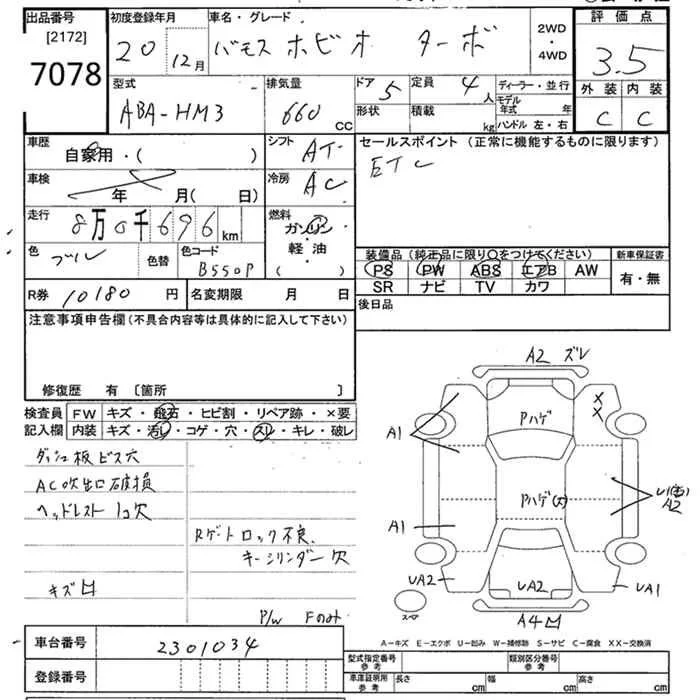 出品番号 [2172] 7078
初度登録年月 20 12月
車名・グレード バモス ホビオ ターボ
2WD・4WD
評価点 3.5
外装 内装
C C
型式 ABA-HM3
排気量 660 cc
ドア 5
定員 4人
形状
積載 kg
ディーラー・並行
モデル年式 年
ハンドル 左・右
車歴 自家用・( )
シフト AT
セールスポイント (正常に機能するものに限ります)
ETC
車検 年 月( 日)
冷房 AC
走行 8万0千696km
燃料 ガソリン 軽・油 ( ・ )
色 ブル 色替
色コード B550P
装備品 (純正品に限り○をつけてください)
新車保証書
PS PW ABS エアB AW
有・無
SR ナビ TV カワ
R券 10180 円
名変期限 月 日
後日品
注意事項申告欄 (不具合内容等は具体的に記入して下さい)
修復歴 有 [箇所 ]
検査員記入欄
FW キズ・飛石・ヒビ割・リペア跡・×要
内装 キズ・汚レ・コゲ・穴・スレ・キレ・破レ
ダッシュ板ビス穴
AC吹出口破損
ヘッドレスト 1コ欠
Rゲートロック不良
キーシリンダー欠
キズ凹
P/W Fのみ
A2 ズレ
XX
Pハゲ
A1
Pハゲ(大)
A2
A1
UA2
UA2
UA1
スペア
A4凹
A-キズ E-エクボ U-凹み W-補修跡 S-サビ C-腐食 XX-交換済
車台番号 2301034
登録番号
型式指定番号 参考
類別区分番号 参考
車庫証明用 参考
長さ cm 幅 cm 高さ cm